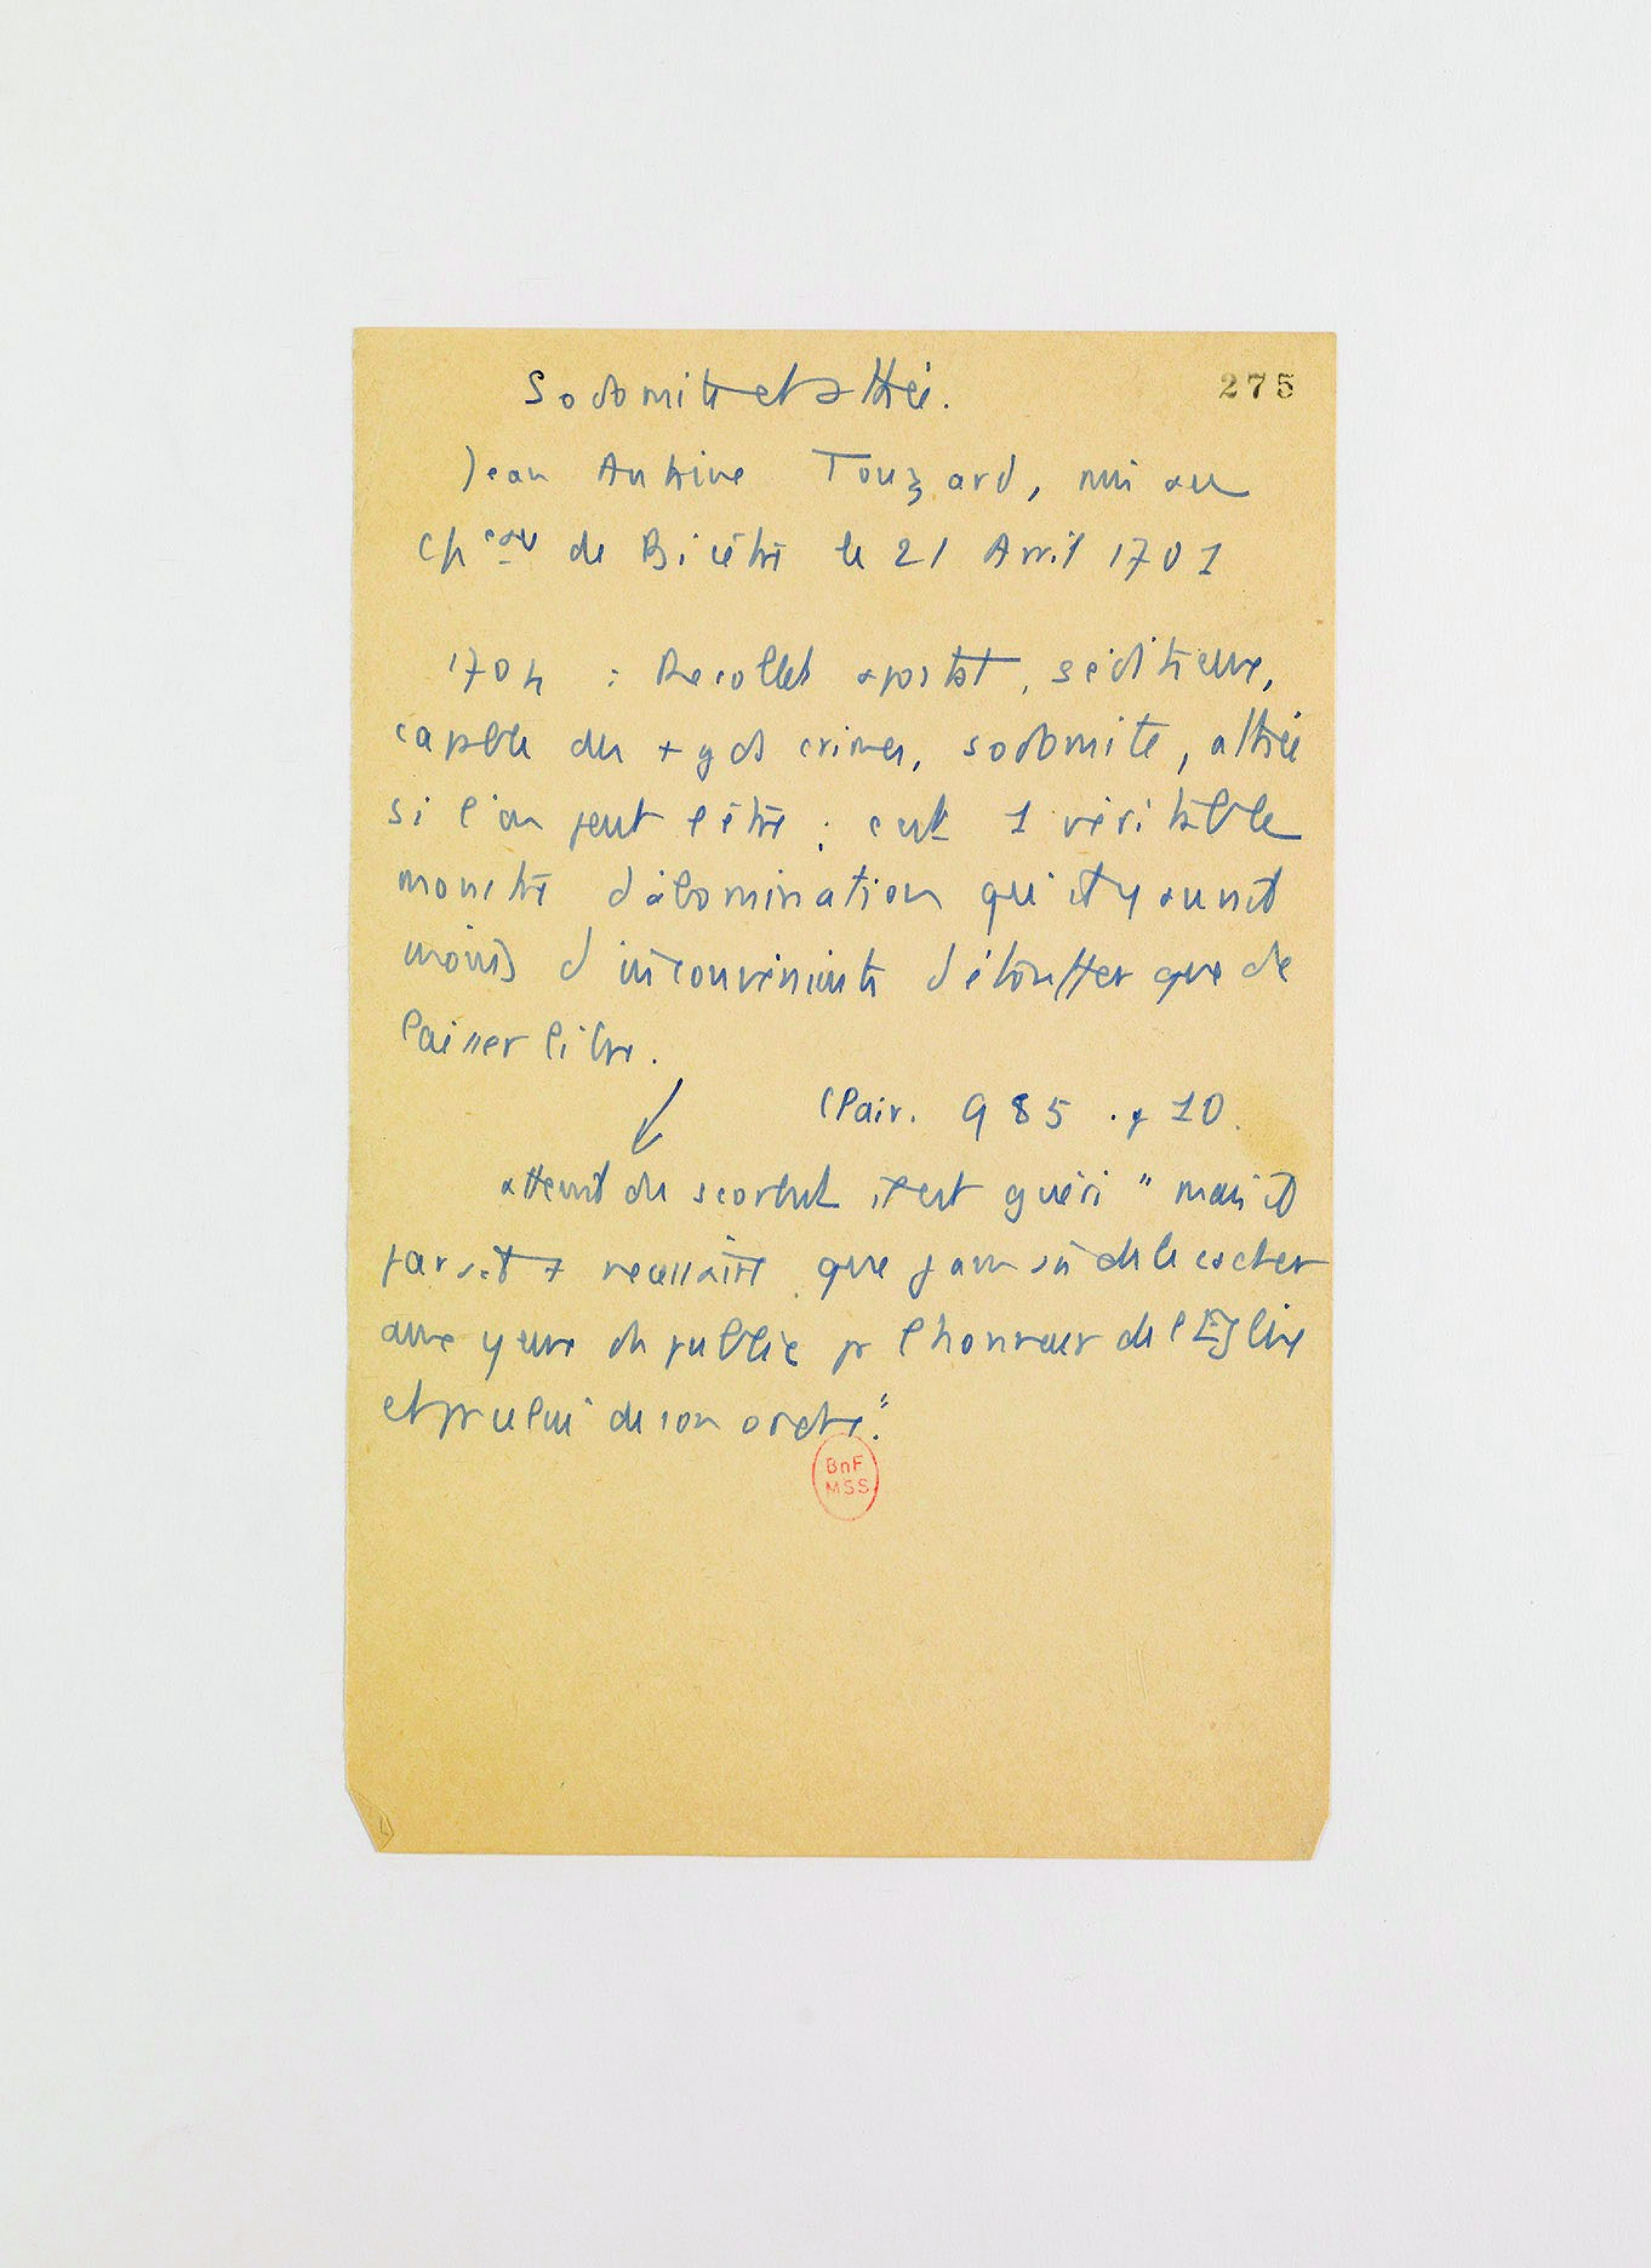 Sodomite et athée.
275
Jean Antoine Touzard, mis au
chᵉᵃᵘ de Bicêtre le 21 Avril 1701
1704 : Recollet apostat, séditieux,
capable des + gds crimes, sodomite, athée
si l'on peut l'être ; c'est 1 véritable
monstre d'abomination qu'il y aurait
moins d'inconvénients d'étouffer que de
laisser libre.
(Clair. 985 . p 10.
atteint du scorbut il est guéri " mais il
parait + nécessaire que jamais de le cacher
aux yeux du public pr l'honneur de l'Eglise
et pr celui de son ordre."
BnF
MSS